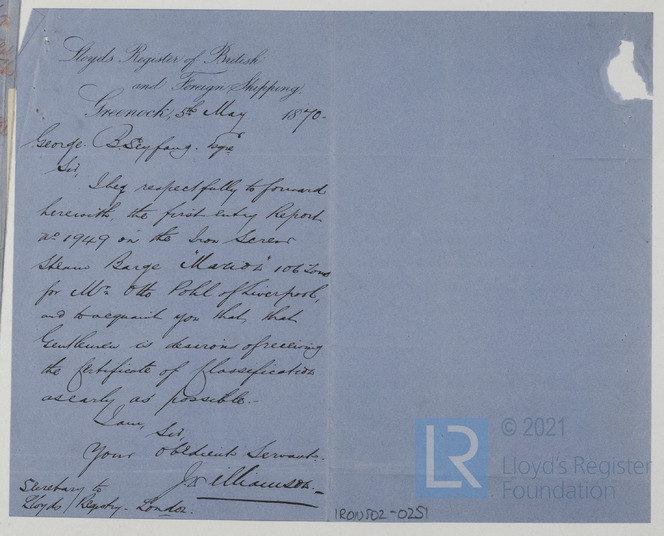 Lloyds Register of British
and Foreign Shipping,
Greenock, 5th May 1870.
George B. Seyfang. Esqre
Sir,
I beg respectfully to forward
herewith the first entry Report
No 1949 on the Iron Screw
Steam Barge "Marion" 106 Tons
for Mr Otto Pohl of Liverpool,
and to acquaint you that, that
Gentleman is desirous of receiving
the Certificate of Classification
as early as possible.-
I am,
Sir,
Your Obedient Servant.
J Williamson.
Secretary to
Lloyds Registry. London.
IRON502-0251
LR © 2021
Lloyd's Register
Foundation